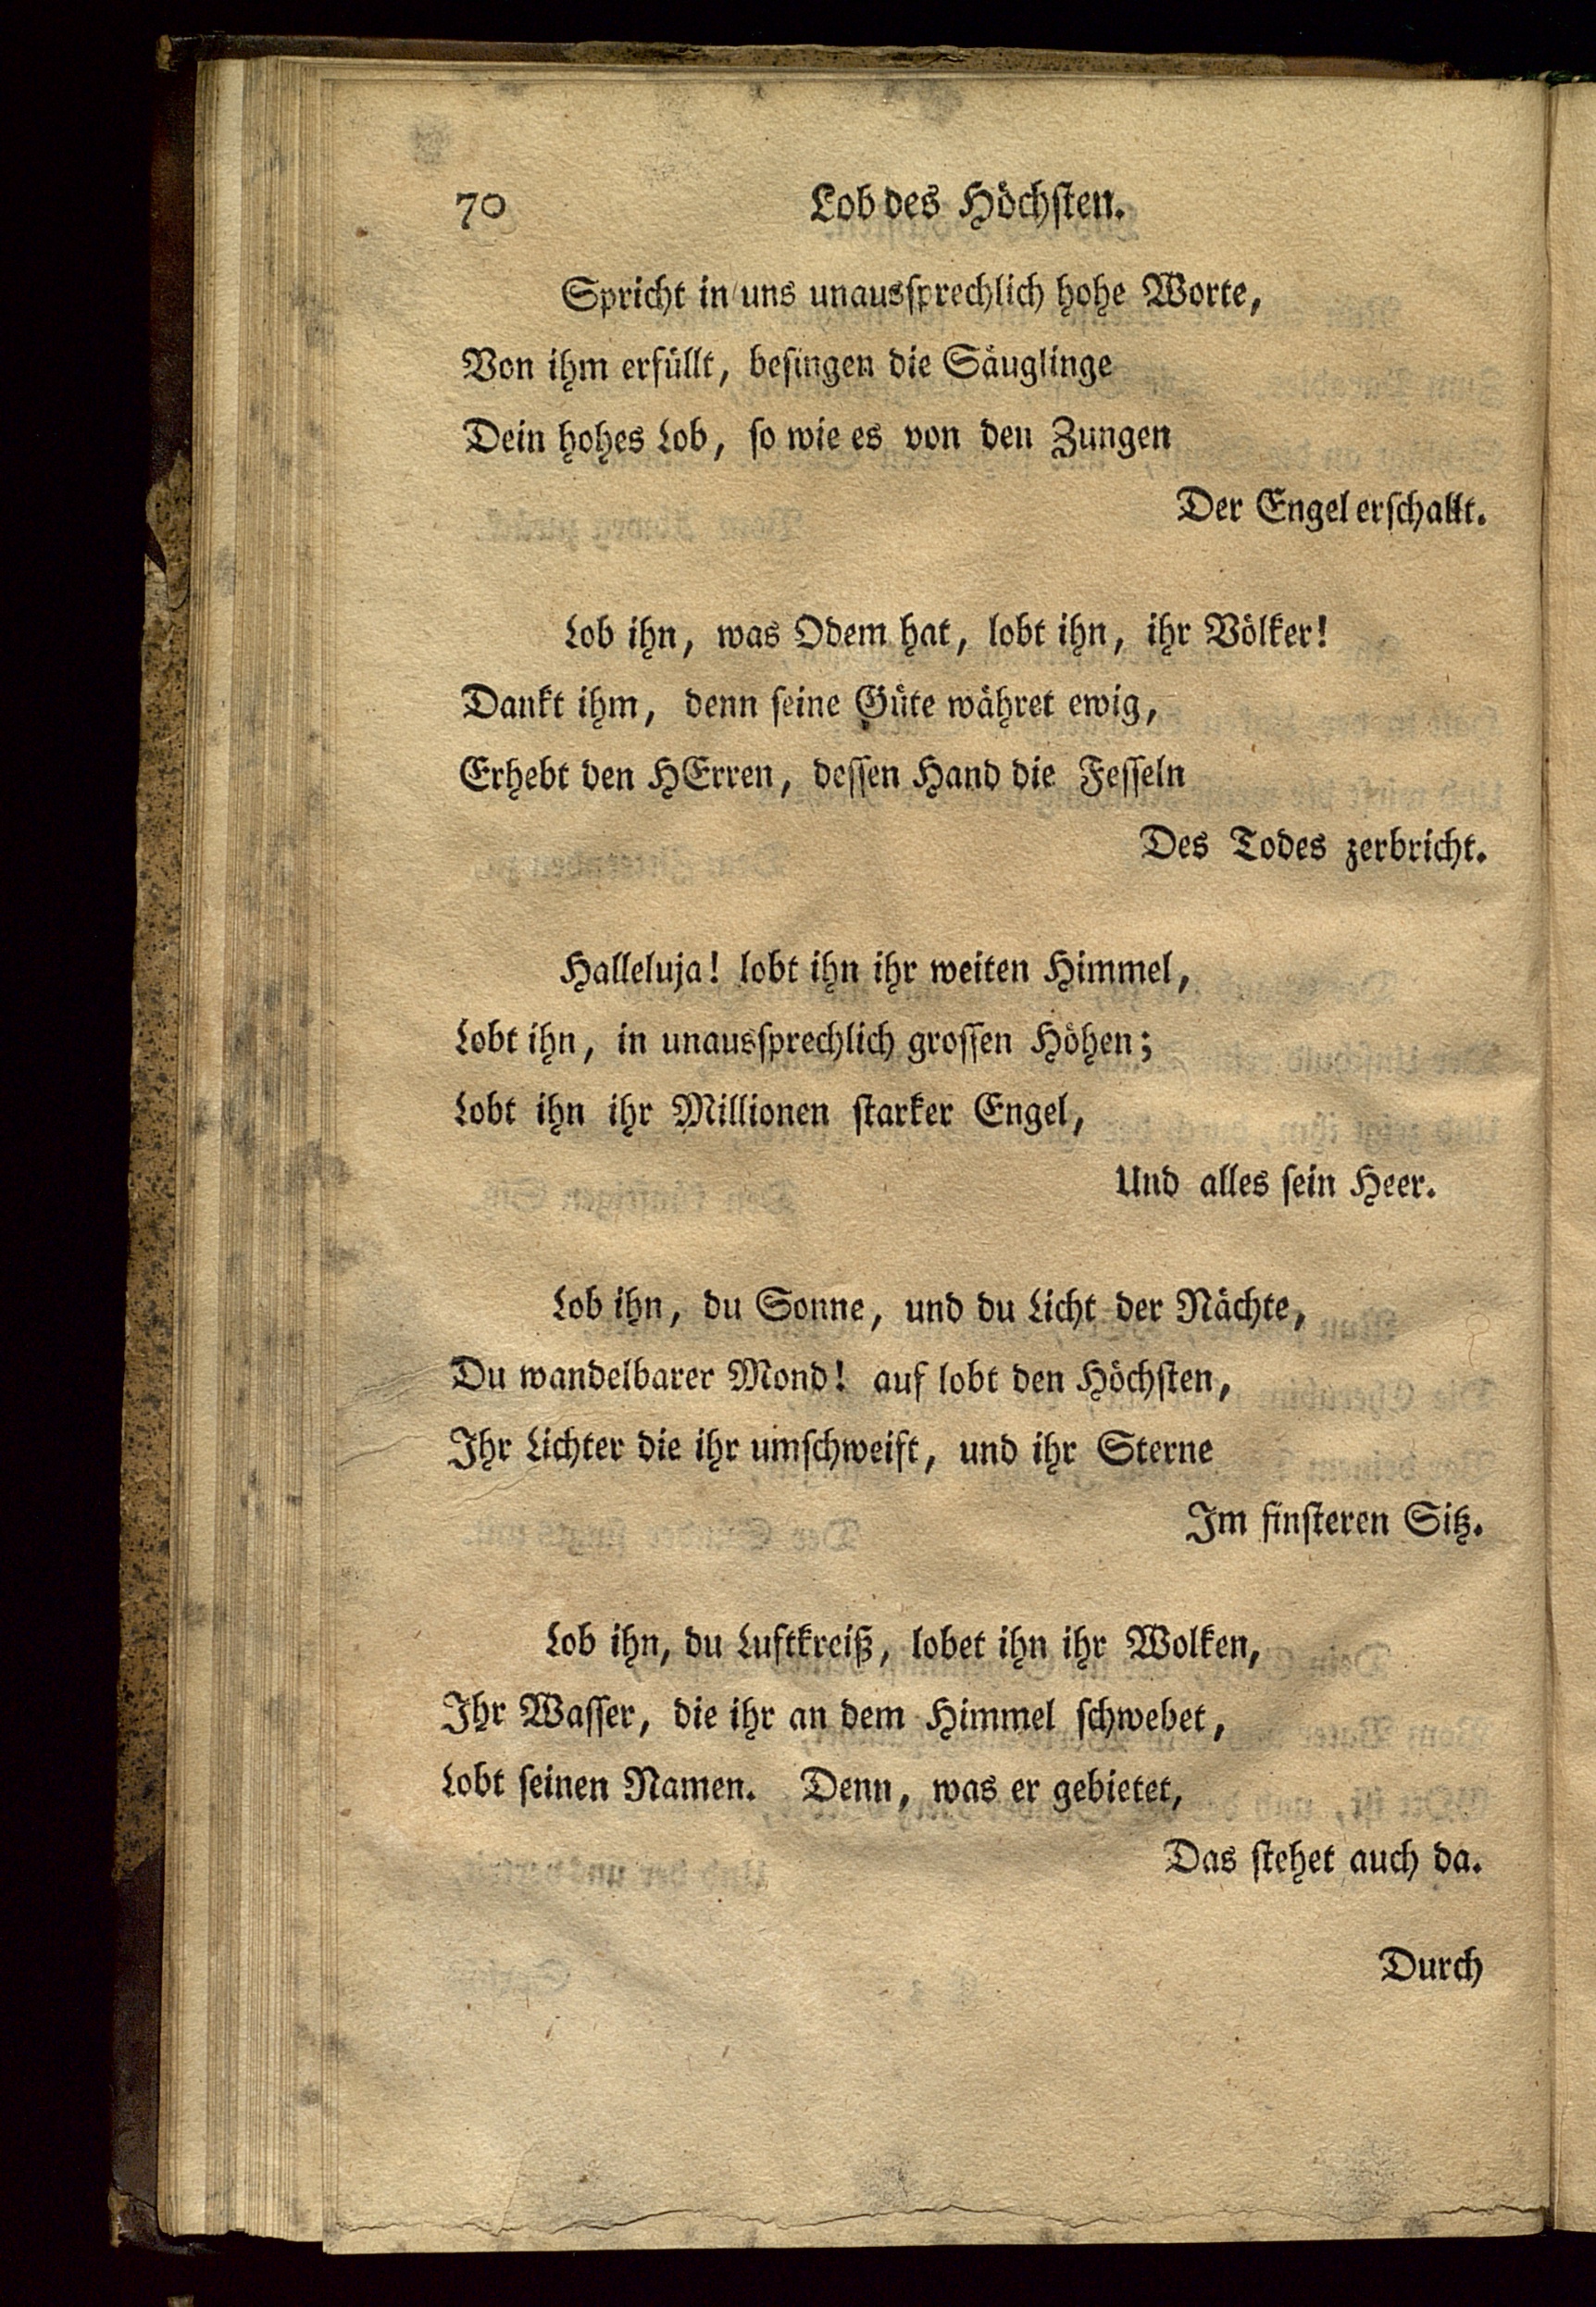 70 Lob des Höchsten.
Spricht in uns unausſprechlich hohe Worte,
Von ihm erfüllt, beſingen die Säuglinge
Dein hohes Lob, ſo wie es von den Zungen
Der Engel erſchallt.
Lob ihn, was Odem hat, lobt ihn, ihr Völker!
Dankt ihm, denn ſeine Güte währet ewig,
Erhebt den HErren, deſſen Hand die Feſſeln
Des Todes zerbricht.
Halleluja! lobt ihn ihr weiten Himmel,
Lobt ihn, in unausſprechlich groſſen Höhen;
Lobt ihn ihr Millionen ſtarker Engel,
Und alles ſein Heer.
Lob ihn, du Sonne, und du Licht der Nächte,
Du wandelbarer Mond! auf lobt den Höchſten,
Ihr Lichter die ihr umſchweift, und ihr Sterne
Im finſteren Sitz.
Lob ihn, du Luftkreiß, lobet ihn ihr Wolken,
Ihr Waſſer, die ihr an dem Himmel ſchwebet,
Lobt ſeinen Namen. Denn, was er gebietet,
Das ſtehet auch da.
Durch